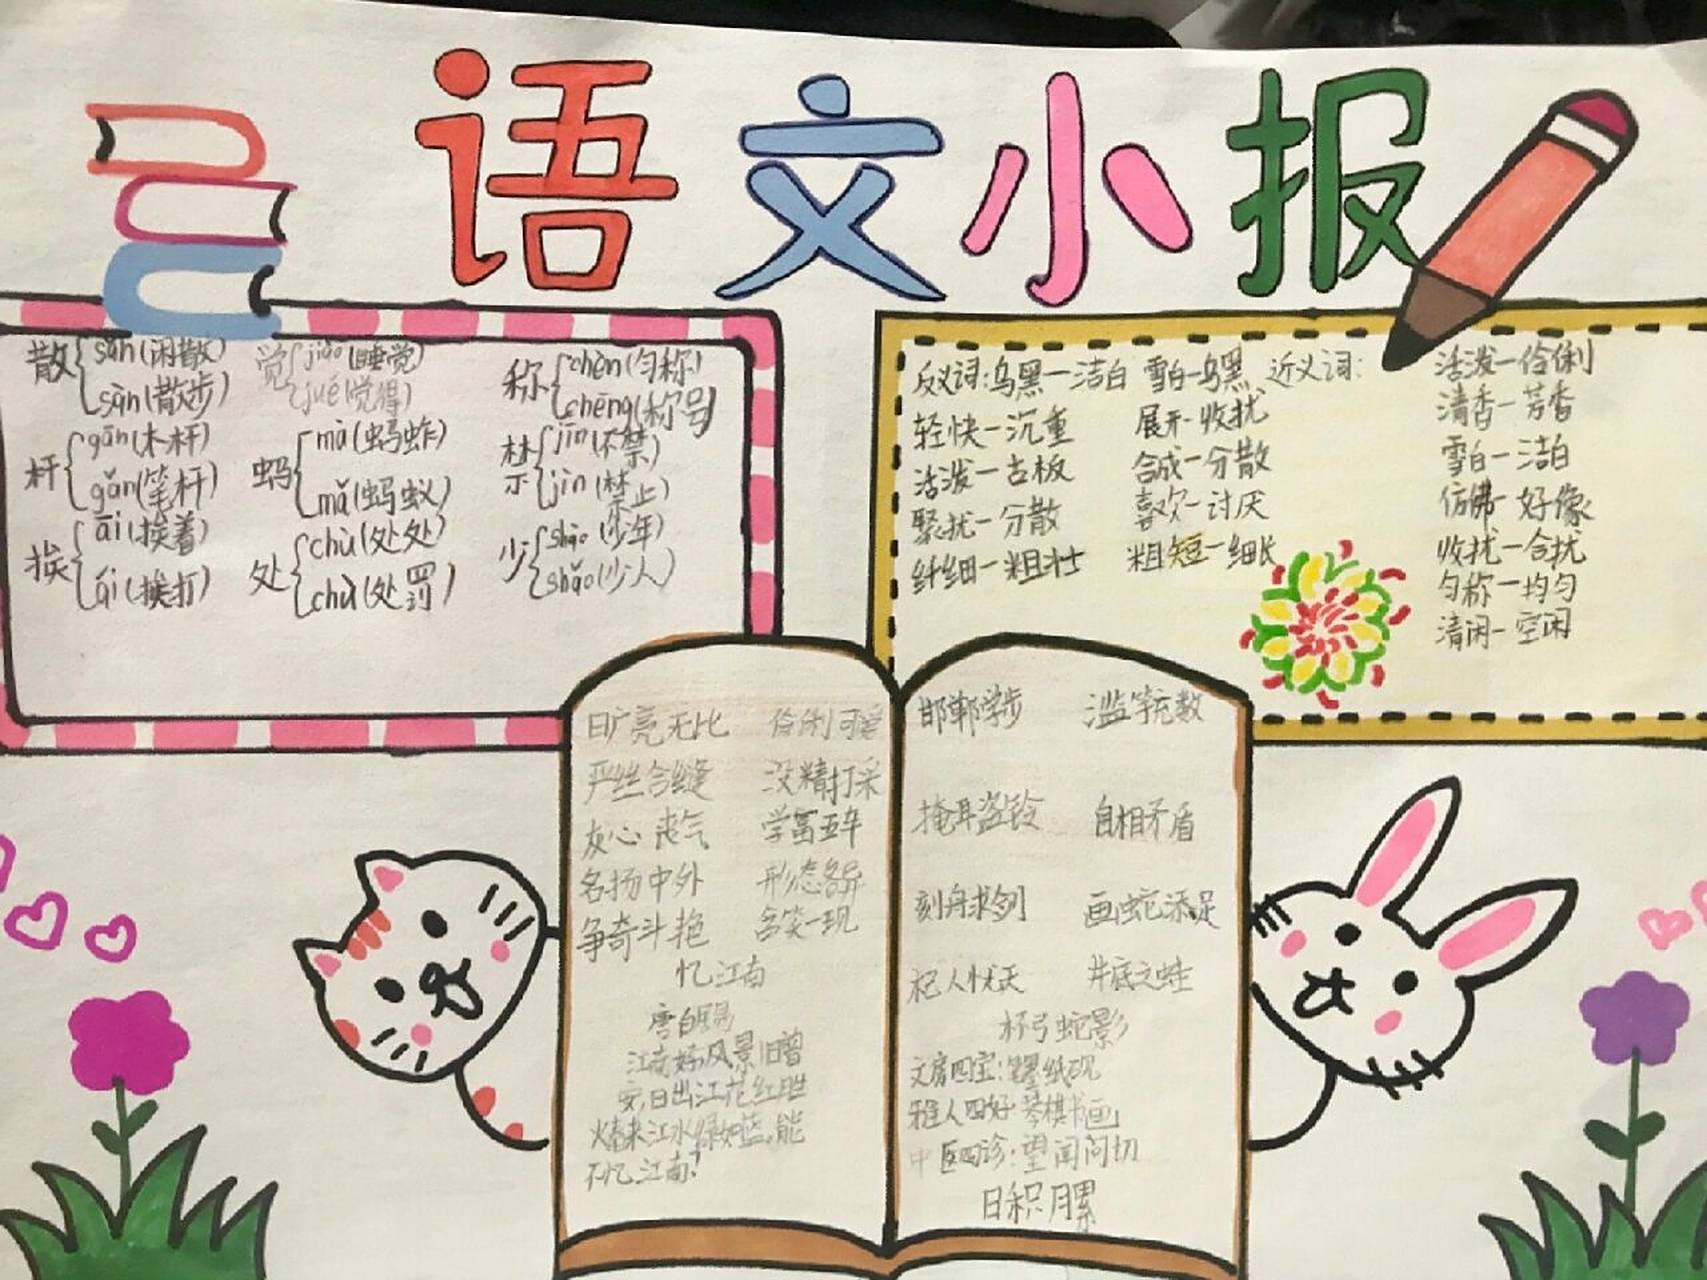 语文小报
散 sǎn(闲散) sàn(散步)
觉 jiào(睡觉) jué(觉得)
称 chèn(匀称) chēng(称号)
杆 gān(木杆) gǎn(笔杆)
蚂 mà(蚂蚱) mǎ(蚂蚁)
禁 jīn(不禁) jìn(禁止)
挨 āi(挨着) ái(挨打)
处 chù(处处) chǔ(处罚)
少 shào(少年) shǎo(少人)
反义词:乌黑—洁白 雪白—乌黑
轻快—沉重 展开—收拢
活泼—古板 合成—分散
聚拢—分散 喜欢—讨厌
纤细—粗壮 粗短—细长
近义词:
活泼—伶俐
清香—芳香
雪白—洁白
仿佛—好像
收拢—合拢
匀称—均匀
清闲—空闲
旷亮无比 伶俐可爱
严丝合缝 没精打采
灰心丧气 学富五车
名扬中外 形态各异
争奇斗艳 含笑一现
忆江南
唐白居易
江南好,风景旧曾
安,日出江花红胜
火,春来江水绿如蓝。能
不忆江南?
邯郸学步 滥竽充数
掩耳盗铃 自相矛盾
刻舟求剑 画蛇添足
杞人忧天 井底之蛙
杯弓蛇影
文房四宝:笔墨纸砚
雅人四好 琴棋书画
中医四诊:望闻问切
日积月累